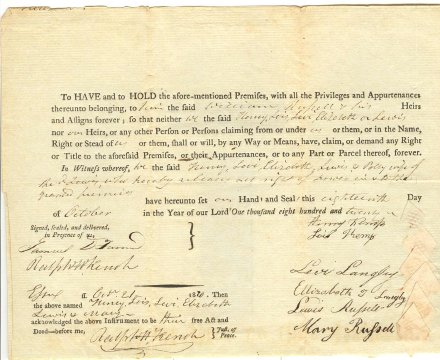 To HAVE and to HOLD the afore-mentioned Premises, with all the Privileges and Appurtenances
thereunto belonging, to him the said William Russell & his Heirs
and Assigns forever; so that neither we the said Henry, Lois, Levi Elizabeth & Lewis
nor our Heirs, or any other Person or Persons claiming from or under us or them, or in the Name,
Right or Stead of us or them, shall or will, by any Way or Means, have, claim, or demand any
Right or Title to the aforesaid Premises, or their Appurtenances, or to any Part or Parcel thereof, forever.
In Witness whereof, we the said Henry, Lois, Levi Elizabeth, Lewis & Polly wife of
the who hereby releases all right of dower in & to the
premises
have hereunto set our Hand and Seal this eighteenth Day
of October in the Year of our Lord One thousand eight hundred and twenty
Signed, sealed, and delivered,
in Presence of us
Samuel
Ralph H French
Henry Kemp
Lois Kemp
Levi Langley
Elizabeth Langley
Lewis Russell
Mary Russell
Essex ss. Oct. 21 1820. Then
the above named Henry, Lois, Levi, Elizabeth
Lewis & Mary
acknowledged the above Instrument to be their free Act and
Deed—before me, Ralph H French Just. of Peace.